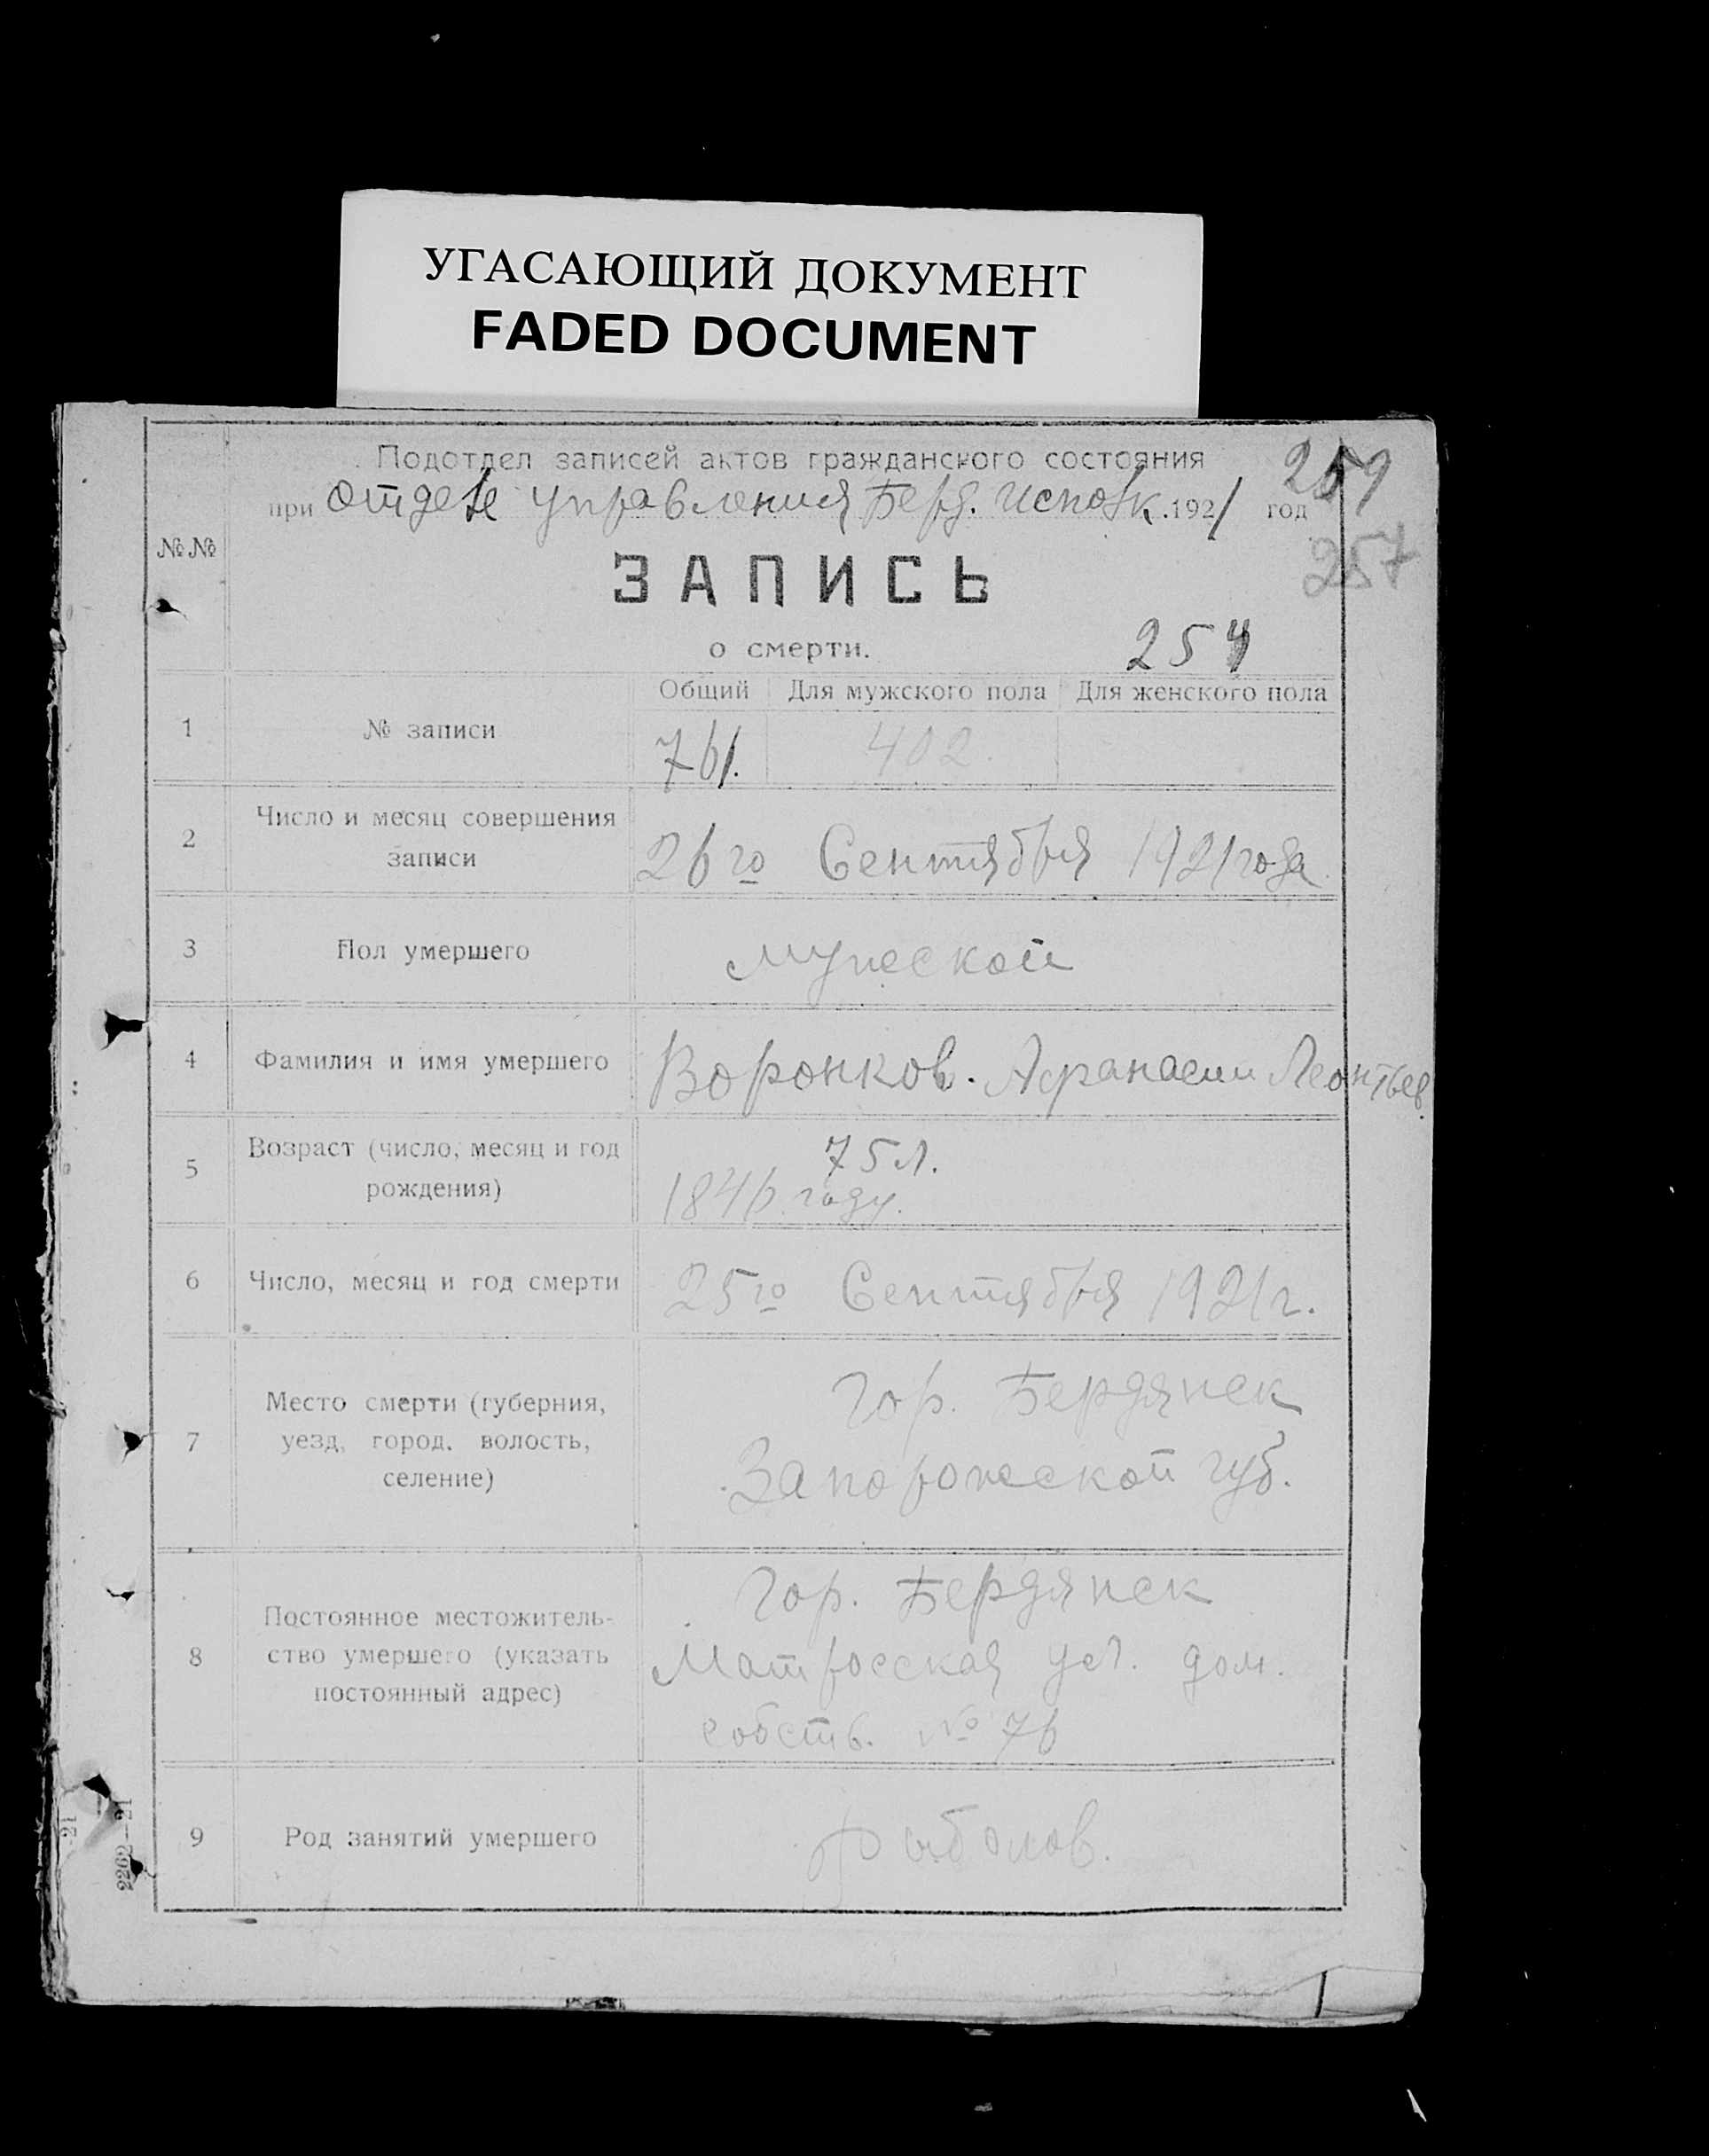 УГАСАЮЩИЙ ДОКУМЕНТ
FADED DOCUMENT
Подотдел записей актов гражданского состояния
259
при отделе управления Берд. исполк. 1921 год
257
№№
ЗАПИСЬ
о смерти.
254
Общий Для мужского пола Для женского пола
1 № записи 761. 402.
2 Число и месяц совершения
записи
26го Сентября 1921 года
3 Пол умершего мужской
4 Фамилия и имя умершего Воронков. Афанасий Леонтьев.
5 Возраст (число, месяц и год
рождения)
75 л.
1846 году.
6 Число, месяц и год смерти 25го Сентября 1921 г.
7 Место смерти (губерния,
уезд, город, волость,
селение)
Гор. Бердянск
Запорожской губ.
8 Постоянное местожитель-
ство умершего (указать
постоянный адрес)
Гор. Бердянск
Матросская ул. дом.
собств. № 76
9 Род занятий умершего рыболов.
2262—21
-21